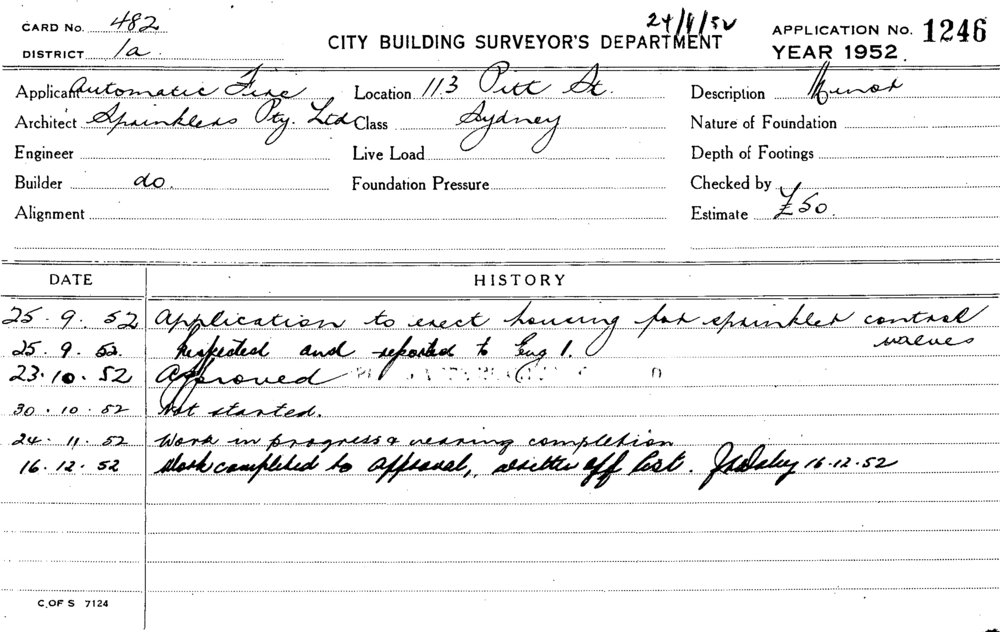 CARD No. 482
24/9/52
DISTRICT 1a.
CITY BUILDING SURVEYOR'S DEPARTMENT
APPLICATION No. 1246
YEAR 1952.
Applicant Automatic Fire Location 113 Pitt St. Description Minor
Architect Sprinklers Pty. Ltd Class Sydney Nature of Foundation
Engineer Live Load Depth of Footings
Builder do. Foundation Pressure Checked by
Alignment Estimate £50.
DATE HISTORY
25.9.52 Application to erect housing for sprinkler control
valves
25.9.52. Inspected and reported to Eng 1.
23.10.52 Approved
30.10.52 Not started.
24.11.52 Work in progress & nearing completion
16.12.52 Work completed to approval, write off list. 16.12.52
C. OF S 7124